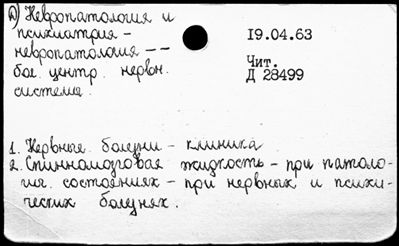 D) Невропатология и
психиатрия -
невропатология --
бол. центр. нервн.
система.
19.04.63
Чит.
Д 28499
1. Нервные болезни - клиника
2. Спинномозговая жидкость - при патоло-
гич. состояниях - при нервных и психи-
ческих болезнях.